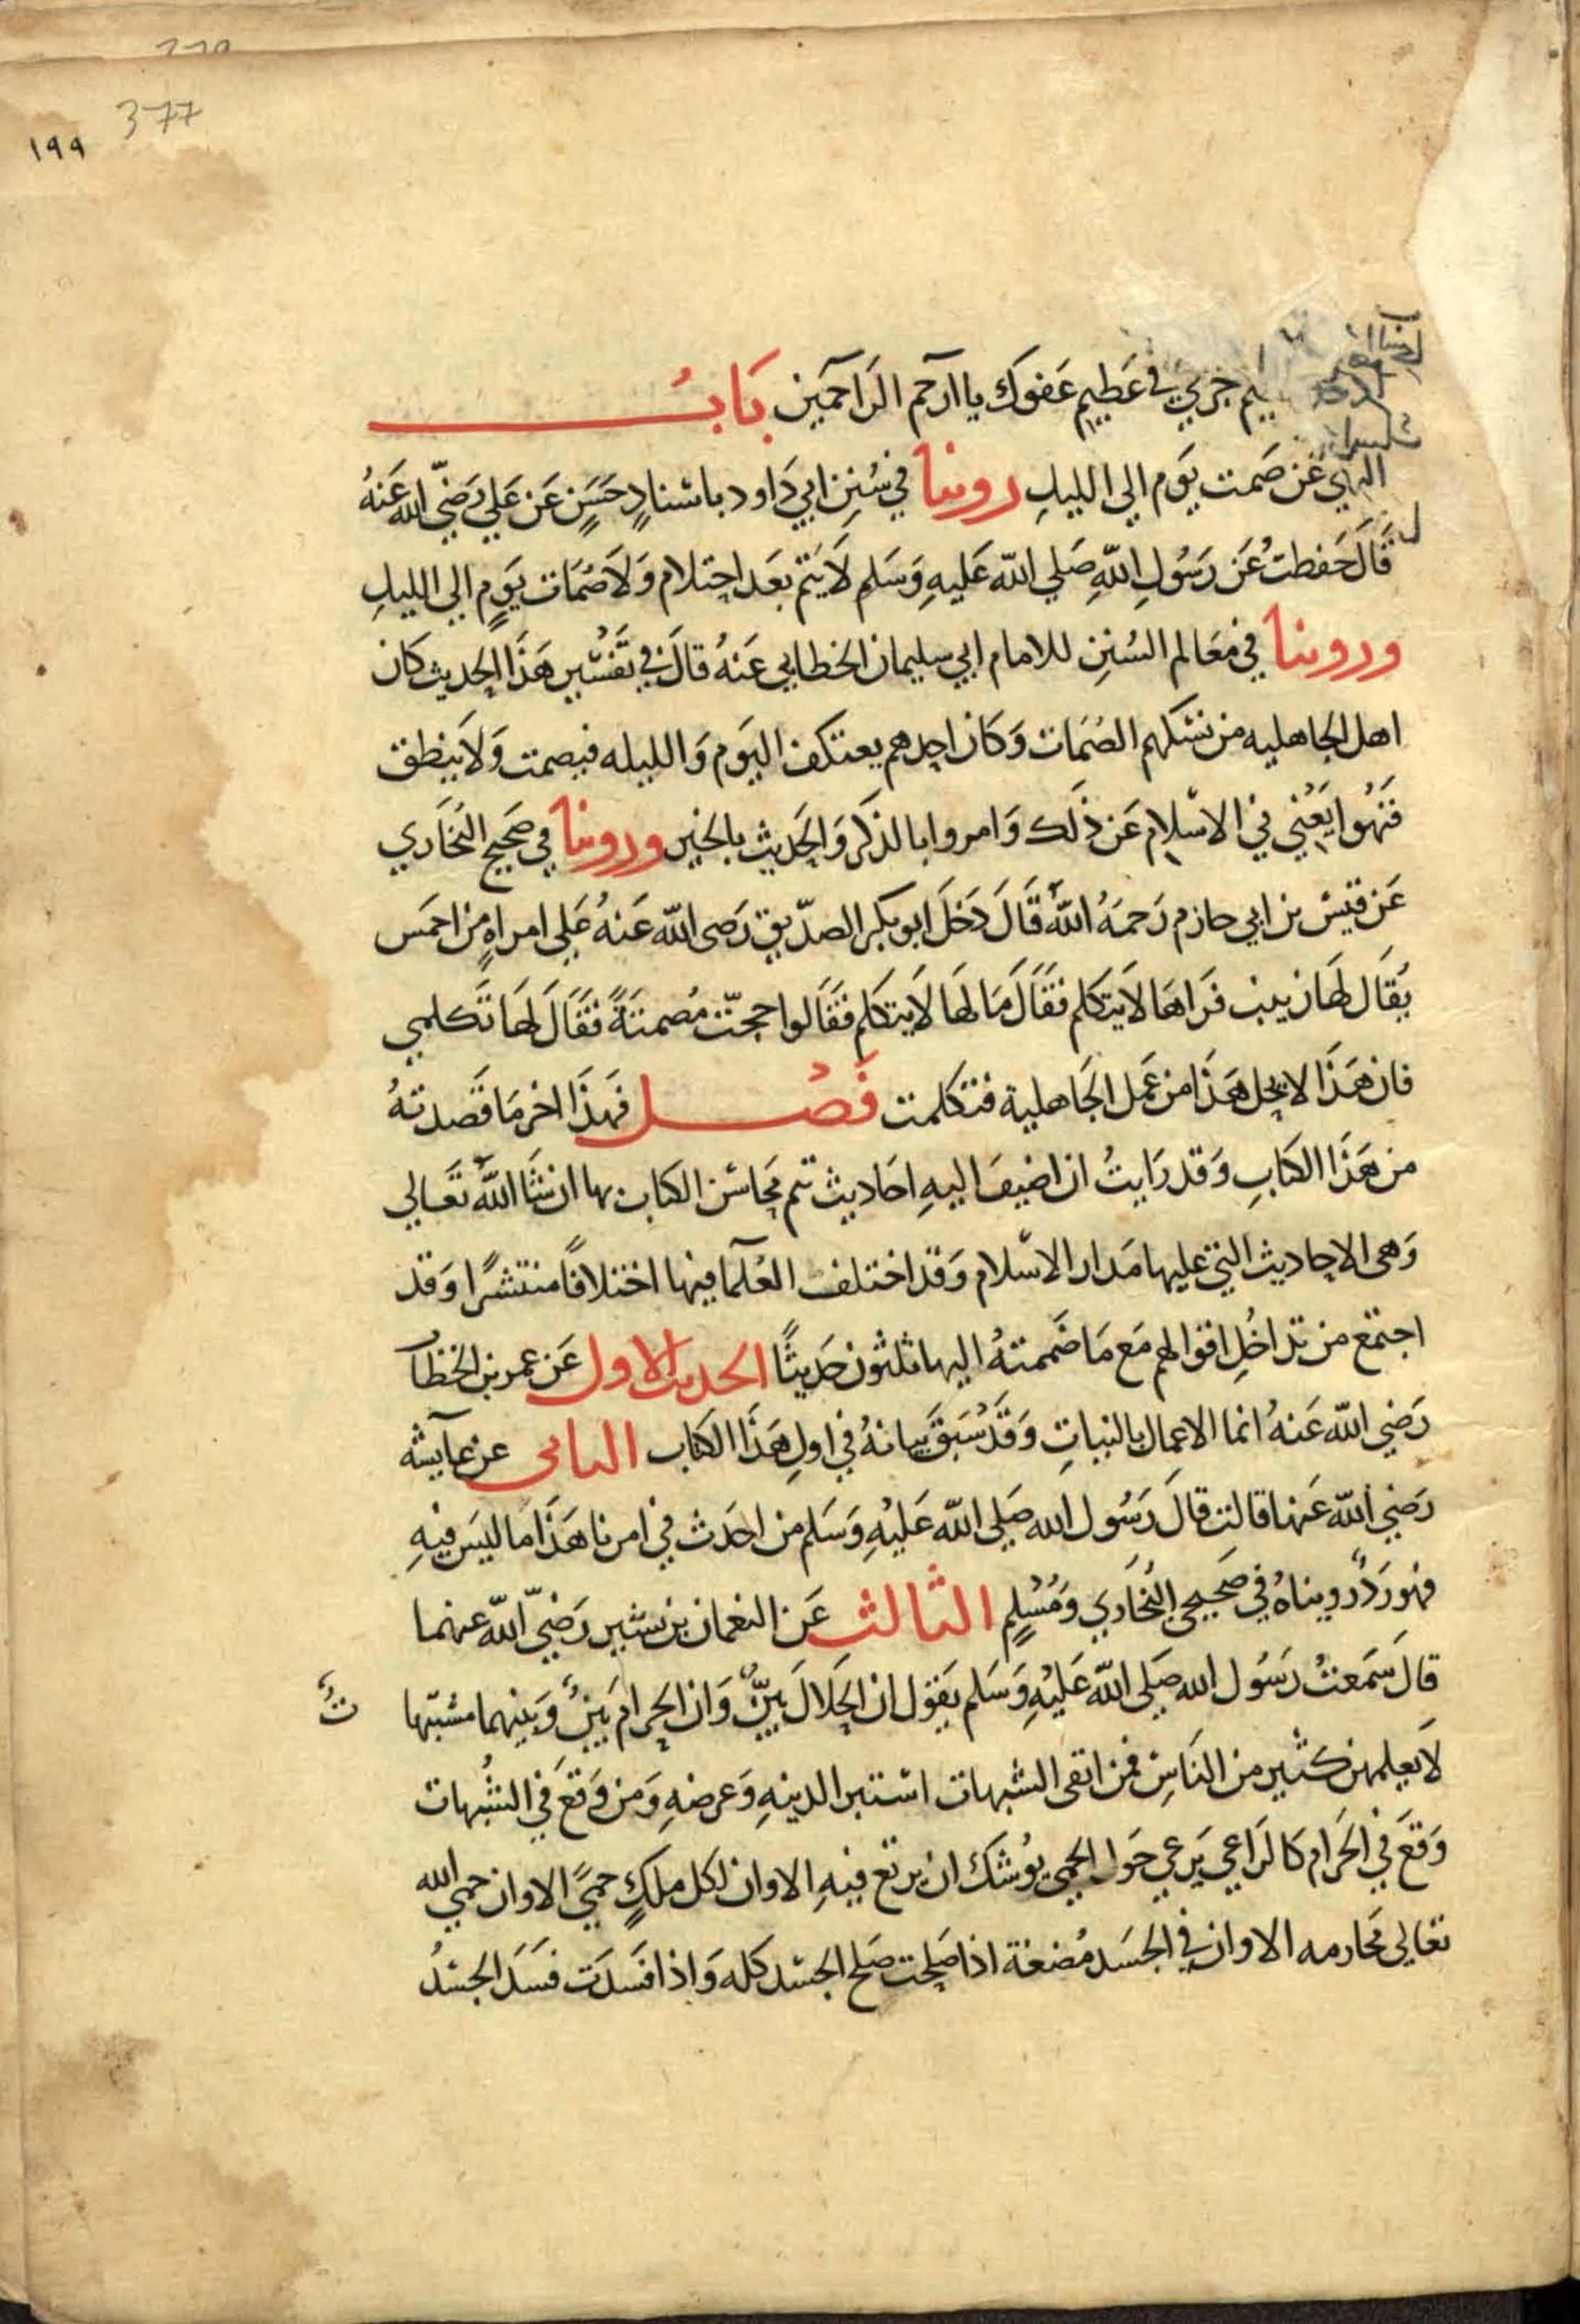 377
١٩٩
جرمي في عظيم عفوك يا ارحم الراحمين بَابُ
النهي عن صمت يَوم الى الليل روينا في سُنن ابي دَاود باسنادٍ حَسَنٍ عَن عَلي رَضيّ الله عَنهُ
قَالَ حَفظتُ عَن رَسُولِ اللهِ صَلي الله عَليهِ وَسَلم لَا يتم بعَد احتلام وَلَا صُمَات يَومٍ الي الليلِ
وروينا في مَعَالم السُننِ للامام ابي سليمان الخطابي عَنهُ قالَ في تَفسُير هَذَا الحديث كان
اهل الجاهليه من نسكهم الصُمَات وَكَان احدهم يعتكف اليَوم وَالليله فيصمت وَلَا ينطق
فَنُهُوا يَعْني في الاسلام عَن ذلك وَامروا بالذكر وَالحَديث بالخير وروينا في صَحيح البُخَاري
عَن قيس بن ابي حازم رَحمَهُ اللهُ قَالَ دَخَلَ ابو بكر الصدّيق رَضى الله عَنهُ عَلي امراهٍ من احمَس
يُقَال لهَا زينب فَرَاهَا لَا يتكلم فَقَالَ مَا لهَا لَا يتكلم فَقَالوا حجّت مُصمتَةً فَقَالَ لهَا تَكلمي
فان هَذَا لا يحل هَذَا من عَمل الجَاهلية فتكلمت فَصُل فهذَا اخر مَا قَصدتهُ
من هَذَا الكتابِ وَقد رَايتُ ان اضيفَ اليهِ احَاديث تتم محَاسن الكتاب بها ان شَا اللهُ تَعَالي
وَهى الاحاديث التي عليها مَدار الاسلام وَقد اختلف العُلمَا فيها اختلافًا منتشرًا وَقد
اجتمَع من تداخُلِ اقوالهم مَع مَا ضَممتهُ اليها ثلثون حَديثًا الحديث الاول عَن عمر بن الخطاب
رَضي الله عَنهُ انما الاعمال بالنياتِ وَقَد سَبَقَ بيانهُ في اولِ هَذَا الكتاب الثانى عن عَايشه
رَضي الله عَنها قالت قالَ رَسُول الله صَلي الله عَليهِ وَسَلم من احدَث في امرنا هَذَا ما ليَس فيهِ
فهو رَدٌ رويناهُ في صَحيحي البُخَاري وَمُسْلِم الثالث عَن النعمان بن بشير رَضيّ الله عنهما
قالَ سَمعتُ رَسُول الله صَلي الله عَليهِ وَسَلم يَقول ان الحلَالَ بَيّنٌ وَان الحرامَ بَينٌ وَبَينهما مشبّها تٌ
لَا يَعلمهن كثير من النَاسِ فمن اتقى الشبهات استبرا لدينهِ وَعرضهِ وَمن وَقعَ في الشُبهات
وَقعَ في الحَرام كالرَاعي يَرعي حَول الحِمي يوُشك ان يرتع فيهِ الا وان لكل ملكٍ حميً الا وان حمي الله
تعَالي محَارمه الا وان في الجسَد مُضغة اذا صَلحت صَلح الجسَد كله وَاذا فسَدَت فسَدَ الجسَدُ